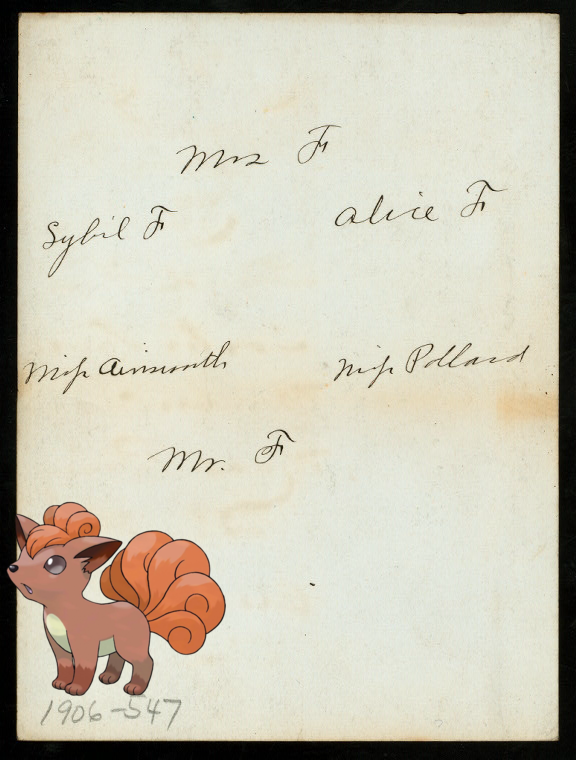 Mrs F
Sybil F
Alice F
Miss Ainsworth
Miss Pollard
Mr. F
1906-547